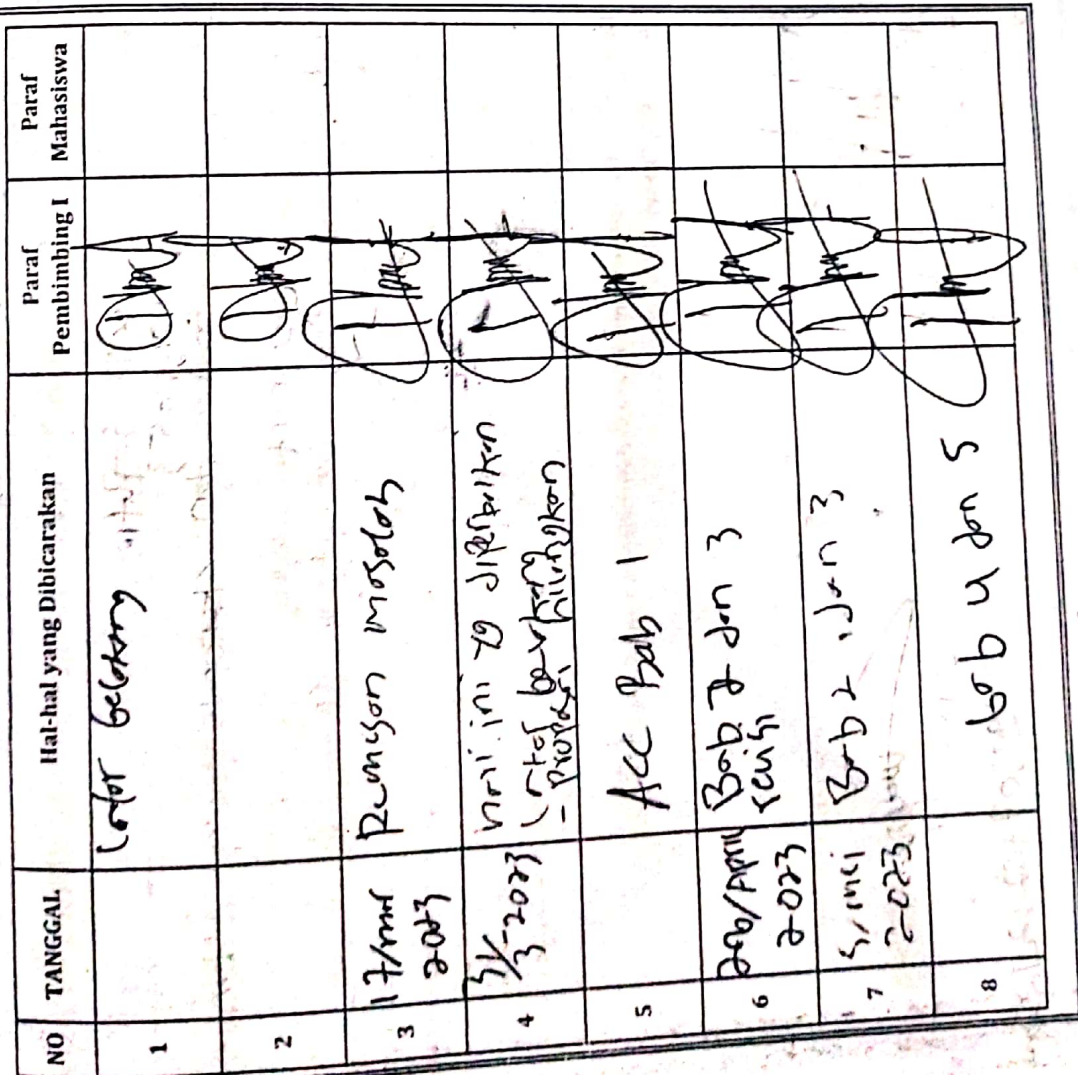 NO TANGGAL Hal-hal yang Dibicarakan Paraf Pembimbing I Paraf Mahasiswa
1 Lator belakang
2
3 17/mar 2023 Rumusan masalah
4 3-2023 ini yg diperbaikan
Latar belakang
- hilangkan
5 ACC Bab 1
6 /April 2023 Bab 2 dan 3
revisi
7 5/mei 2023 Bab 2 dan 3
8 bab 4 dan 5